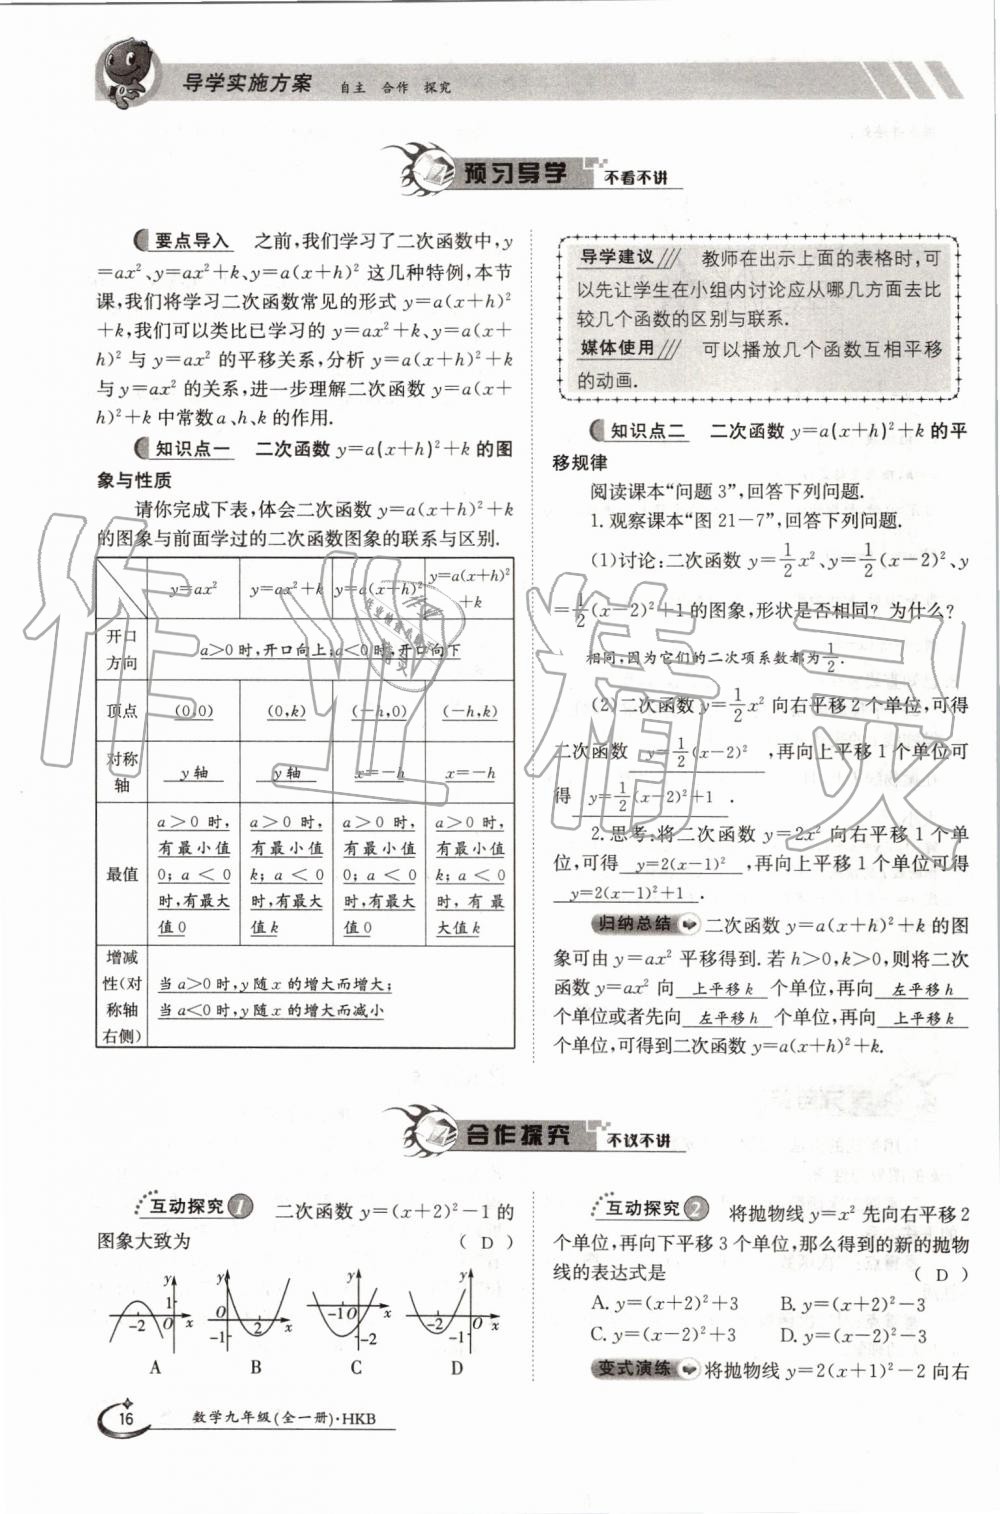 导学实施方案 自主 合作 探究
预习导学 不看不讲
要点导入 之前,我们学习了二次函数中,y
=ax²、y=ax²+k、y=a(x+h)² 这几种特例,本节
课,我们将学习二次函数常见的形式 y=a(x+h)²
+k,我们可以类比已学习的 y=ax²+k、y=a(x+
h)² 与 y=ax² 的平移关系,分析 y=a(x+h)²+k
与 y=ax² 的关系,进一步理解二次函数 y=a(x+
h)²+k 中常数 a、h、k 的作用.
知识点一 二次函数 y=a(x+h)²+k 的图
象与性质
请你完成下表,体会二次函数 y=a(x+h)²+k
的图象与前面学过的二次函数图象的联系与区别.
y=ax² y=ax²+k y=a(x+h)² y=a(x+h)²
+k
开口
方向 a>0 时,开口向上;a<0 时,开口向下
顶点 (0,0) (0,k) (-h,0) (-h,k)
对称
轴 y 轴 y 轴 x=-h x=-h
a>0 时, a>0 时, a>0 时, a>0 时,
有最小值 有最小值 有最小值 有最小值
最值 0; a<0 k; a<0 0; a<0 k; a<0
时,有最大 时,有最大 时,有最大 时,有最
值 0 值 k 值 0 大值 k
增减
性(对 当 a>0 时,y 随 x 的增大而增大;
称轴 当 a<0 时,y 随 x 的增大而减小
右侧)
导学建议 教师在出示上面的表格时,可
以先让学生在小组内讨论应从哪几方面去比
较几个函数的区别与联系.
媒体使用 可以播放几个函数互相平移
的动画.
知识点二 二次函数 y=a(x+h)²+k 的平
移规律
阅读课本“问题 3”,回答下列问题.
1. 观察课本“图 21-7”,回答下列问题.
(1)讨论:二次函数 y=1/2x²、y=1/2(x-2)²、y
=1/2(x-2)²+1 的图象,形状是否相同? 为什么?
相同,因为它们的二次项系数都为1/2.
(2)二次函数 y=1/2x² 向右平移 2 个单位,可得
二次函数 y=1/2(x-2)² ,再向上平移 1 个单位可
得 y=1/2(x-2)²+1 .
2. 思考:将二次函数 y=2x² 向右平移 1 个单
位,可得 y=2(x-1)² ,再向上平移 1 个单位可得
y=2(x-1)²+1 .
归纳总结 二次函数 y=a(x+h)²+k 的图
象可由 y=ax² 平移得到. 若 h>0,k>0,则将二次
函数 y=ax² 向 上平移 k 个单位,再向 左平移 h
个单位或者先向 左平移 h 个单位,再向 上平移 k
个单位,可得到二次函数 y=a(x+h)²+k.
合作探究 不议不讲
互动探究 1 二次函数 y=(x+2)²-1 的
图象大致为 ( D )
y 1 -2 O x
y O 2 x -1
y -1 O x -2
y -2 O x -1
A B C D
互动探究 2 将抛物线 y=x² 先向右平移 2
个单位,再向下平移 3 个单位,那么得到的新的抛物
线的表达式是 ( D )
A. y=(x+2)²+3 B. y=(x+2)²-3
C. y=(x-2)²+3 D. y=(x-2)²-3
变式演练 将抛物线 y=2(x+1)²-2 向右
16 数学九年级(全一册)·HKB
作业精灵